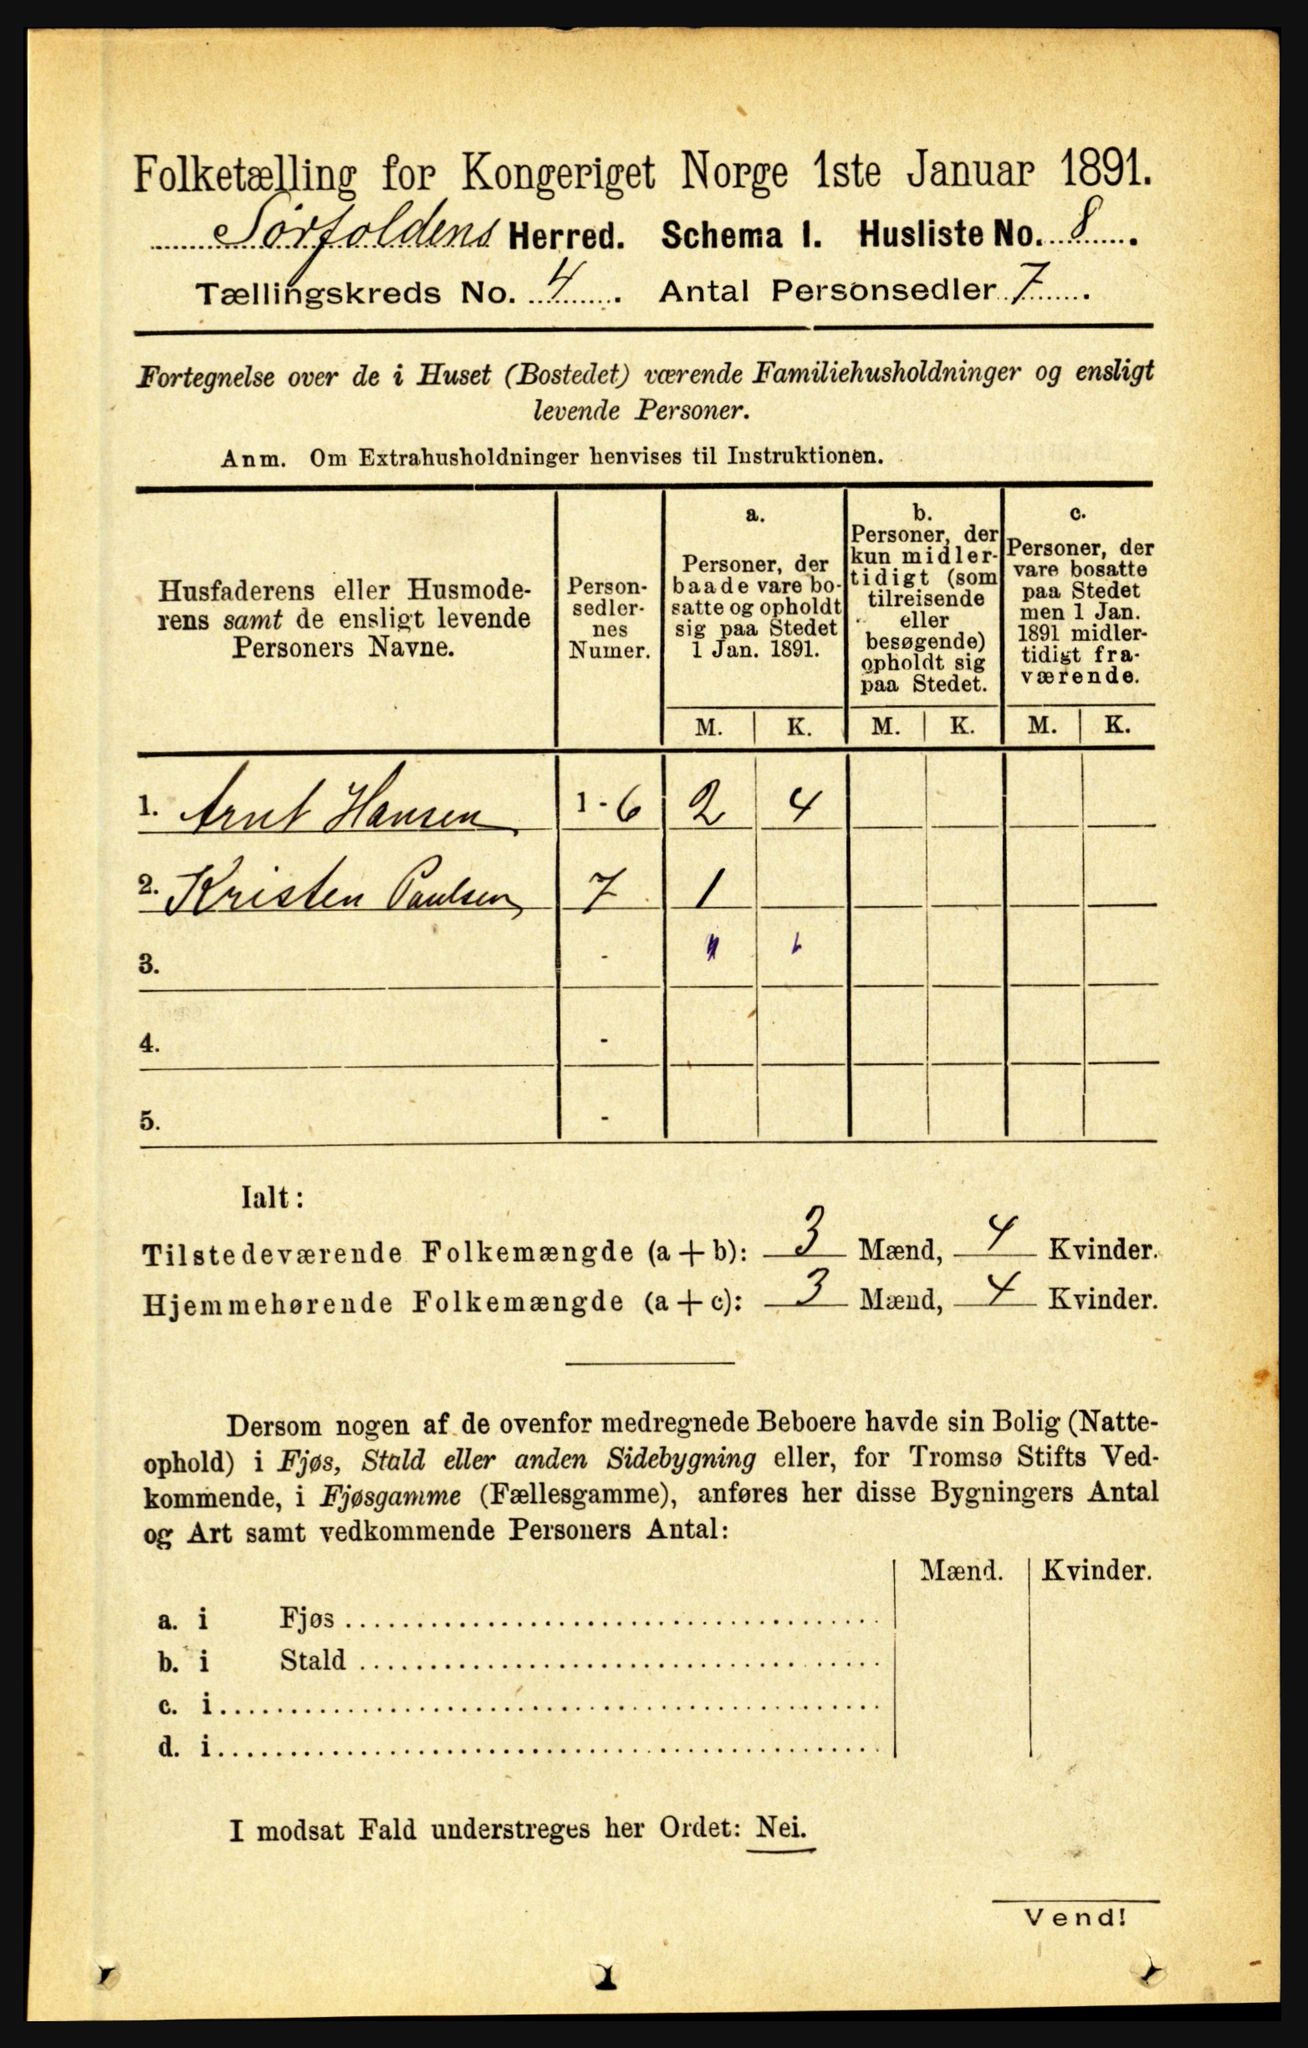 Folketælling for Kongeriget Norge 1ste Januar 1891.
Sørfoldens Herred. Schema 1. Husliste No. 8.
Tællingskreds No. 4. Antal Personsedler 7.
Fortegnelse over de i Huset (Bostedet) værende Familiehusholdninger og ensligt
levende Personer.
Anm. Om Extrahusholdninger henvises til Instruktionen.
Husfaderens eller Husmode-
rens samt de ensligt levende
Personers Navne.
Person-
sedler-
nes
Numer.
a.
Personer, der
baade vare bo-
satte og opholdt
sig paa Stedet
1 Jan. 1891.
b.
Personer, der
kun midler-
tidigt (som
tilreisende
eller
besøgende)
opholdt sig
paa Stedet.
c.
Personer, der
vare bosatte
paa Stedet
men 1 Jan.
1891 midler-
tidigt fra-
værende.
M. K. M. K. M. K.
1. Arnt Hansen 1 - 6 2 4
2. Kristen Paulsen 7 1
3. -
4. -
5. -
Ialt:
Tilstedeværende Folkemængde (a + b): 3 Mænd, 4 Kvinder.
Hjemmehørende Folkemængde (a + c): 3 Mænd, 4 Kvinder.
Dersom nogen af de ovenfor medregnede Beboere havde sin Bolig (Natte-
ophold) i Fjøs, Stald eller anden Sidebygning eller, for Tromsø Stifts Ved-
kommende, i Fjøsgamme (Fællesgamme), anføres her disse Bygningers Antal
og Art samt vedkommende Personers Antal:
Mænd. Kvinder.
a. i Fjøs
b. i Stald
c. i
d. i
I modsat Fald understreges her Ordet: Nei.
Vend!